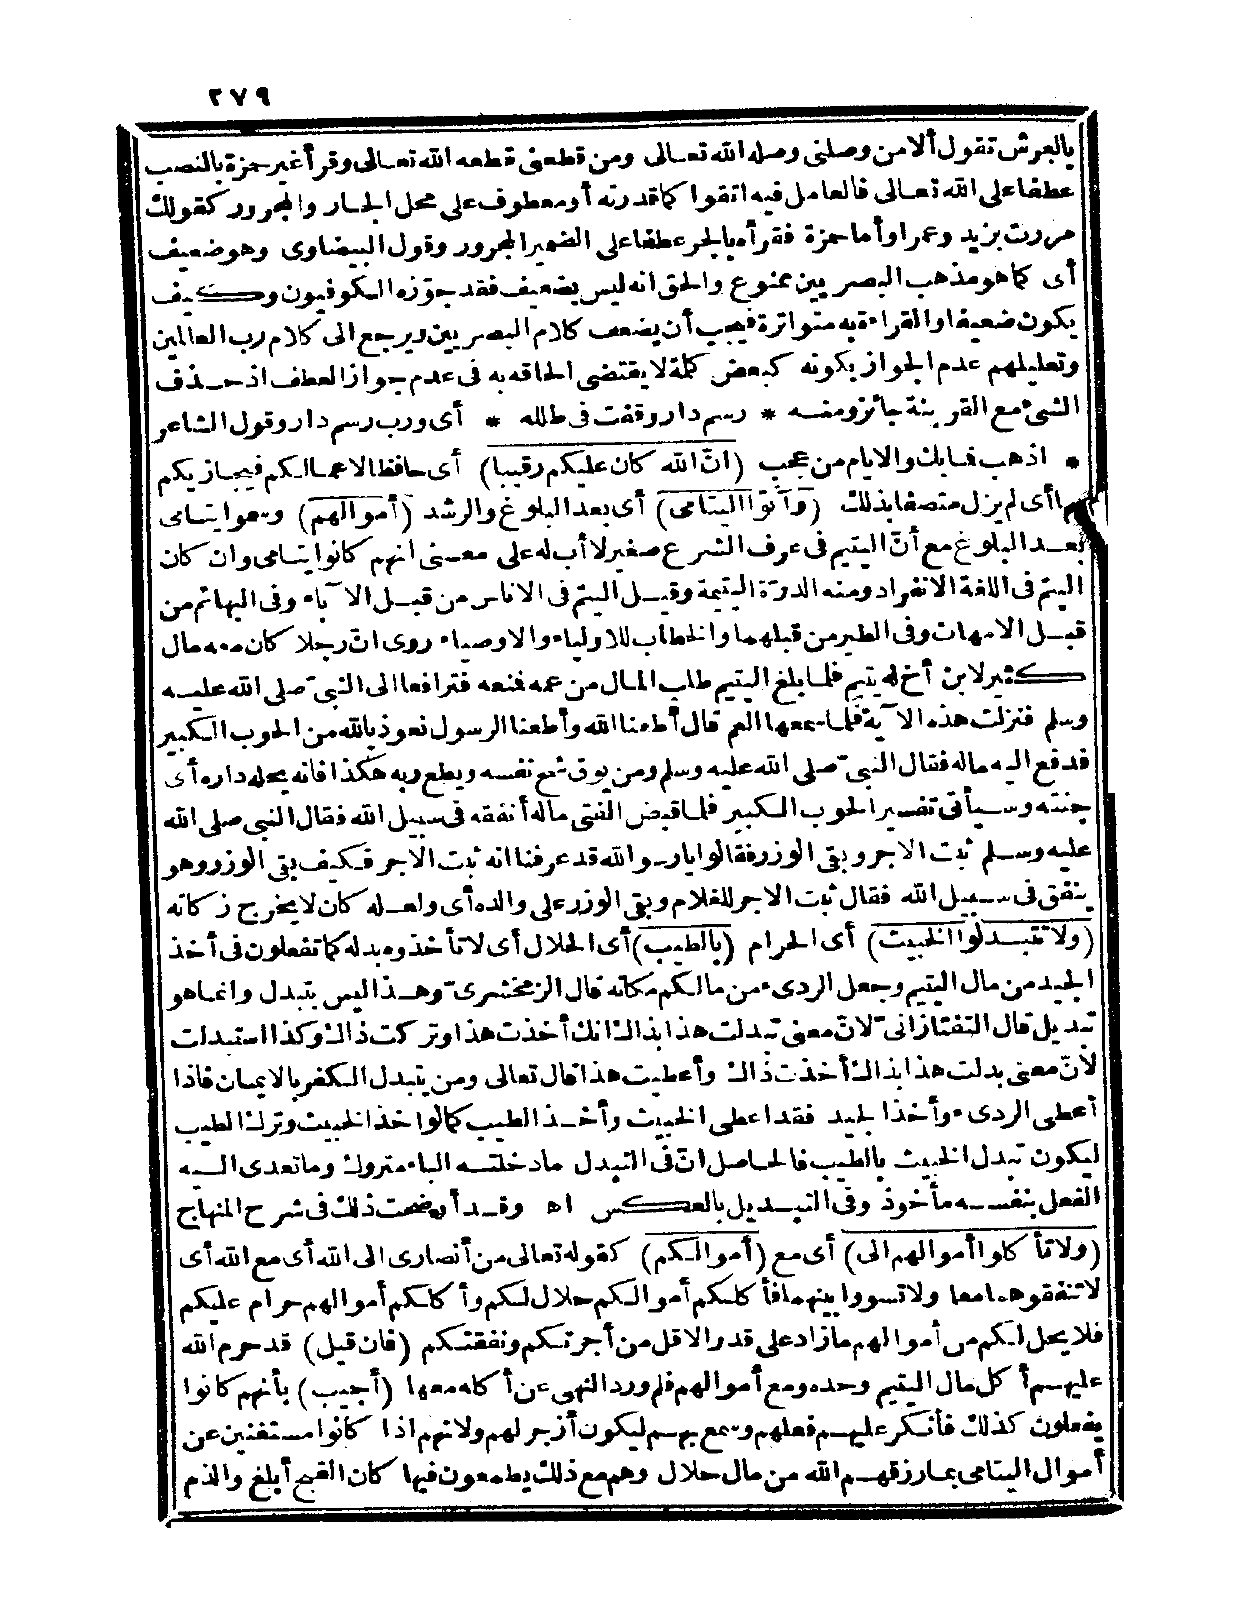 ٢٧٩
بالعرش تقول ألا من وصلنى وصله الله تعالى ومن قطعنى قطعه الله تعالى وقرأ غير حمزة بالنصب
عطفا على الله تعالى فالعامل فيه اتقوا كما قدرته أو معطوف على محل الجار والمجرور كقولك
مررت بزيد وعمرا وأما حمزة فقرأه بالجر عطفا على الضمير المجرور وقول البيضاوى وهو ضعيف
أى كما هو مذهب البصريين ممنوع والحق انه ليس بضعيف فقد جوّزه الكوفيون وكيف
يكون ضعيفا والقراءة به متواترة فيجب أن يضعف كلام البصريين ويرجع الى كلام رب العالمين
وتعليلهم عدم الجواز بكونه كبعض كلمة لا يقتضى الحاقه به فى عدم جواز العطف اذ حذف
الشئ مع القرينة جائز ومنه * رسم دار وقفت فى طلله * أى ورب رسم دار وقول الشاعر
* اذهب فما بك والايام من عجب (انّ الله كان عليكم رقيبا) أى حافظا لاعمالكم فيجازيكم
بها أى لم يزل متصفا بذلك (وآتوا اليتامى) أى بعد البلوغ والرشد (أموالهم) وسموا يتامى
بعد البلوغ مع أنّ اليتيم فى عرف الشرع صغير لا أب له على معنى انهم كانوا يتامى وان كان
اليتم فى اللغة الانفراد ومنه الدرّة اليتيمة وقيل اليتم فى الاناس من قبل الآباء وفى البهائم من
قبل الامهات وفى الطير من قبلهما والخطاب للاولياء والاوصياء روى انّ رجلا كان معه مال
كثير لابن أخ له يتيم فلما بلغ اليتيم طلب المال من عمه فمنعه فترافعا الى النبىّ صلى الله عليه
وسلم فنزلت هذه الآية فلما سمعها العم قال أطعنا الله وأطعنا الرسول نعوذ بالله من الحوب الكبير
فدفع اليه ماله فقال النبىّ صلى الله عليه وسلم ومن يوق شح نفسه ويطع ربه هكذا فانه يحله داره أى
جنته وسيأتى تفسير الحوب الكبير فلما قبض الفتى ماله أنفقه فى سبيل الله فقال النبى صلى الله
عليه وسلم ثبت الاجر وبقى الوزر فقالوا يارسو الله قد عرفنا انه ثبت الاجر فكيف بقى الوزر وهو
ينفق فى سبيل الله فقال ثبت الاجر للغلام وبقى الوزر على والده أى ولعله كان لا يخرج زكاته
(ولا تتبدلوا الخبيث) أى الحرام (بالطيب) أى الحلال أى لا تأخذوه بدله كما تفعلون فى أخذ
الجيد من مال اليتيم وجعل الردىء من مالكم مكانه قال الزمخشرىّ وهذا ليس بتبدل وانما هو
تبديل قال التفتازانىّ لانّ معنى تبدلت هذا بذاك انك أخذت هذا وتركت ذاك وكذا استبدلت
لانّ معنى بدلت هذا بذاك أخذت ذاك وأعطيت هذا قال تعالى ومن يتبدل الكفر بالايمان فاذا
أعطى الردىء وأخذ الجيد فقد اعطى الخبيث وأخذ الطيب كما لو اخذ الخبيث وترك الطيب
ليكون تبدل الخبيث بالطيب فالحاصل انّ فى التبدل ما دخلته الباء متروك وما تعدى اليه
الفعل بنفسه مأخوذ وفى التبديل بالعكس اه وقد أوضحت ذلك فى شرح المنهاج
(ولا تأكلوا أموالهم الى) أى مع (أموالكم) كقوله تعالى من أنصارى الى الله أى مع الله أى
لا تنفقوهما معا ولا تسووا بينهما فأكلكم أموالكم حلال لكم وأكلكم أموالهم حرام عليكم
فلا يحل لكم من أموالهم ما زاد على قدر الاقل من أجرتكم ونفقتكم (فان قيل) قد حرم الله
عليهم أكل مال اليتيم وحده ومع أموالهم فلم ورد النهى عن أكله معها (أجيب) بأنهم كانوا
يفعلون كذلك فأنكر عليهم فعلهم وسمع بهم ليكون أزجر لهم ولانهم اذا كانوا مستغنين عن
أموال اليتامى بما رزقهم الله من مال حلال وهم مع ذلك يطمعون فيها كان القبح أبلغ والذم